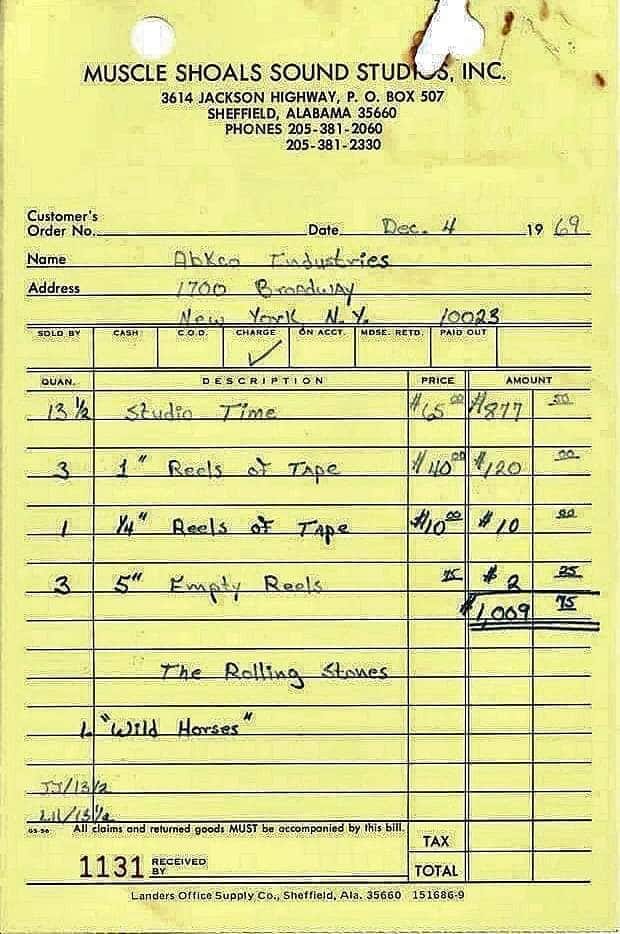 MUSCLE SHOALS SOUND STUDIOS, INC.
3614 JACKSON HIGHWAY, P. O. BOX 507
SHEFFIELD, ALABAMA 35660
PHONES 205-381-2060
205-381-2330
Customer's
Order No. Date Dec. 4 19 69
Name Abkco Industries
Address 1700 Broadway
New York N.Y. 10023
SOLD BY CASH C.O.D. CHARGE ON ACCT. MDSE. RETD. PAID OUT
✓
QUAN. DESCRIPTION PRICE AMOUNT
13 ½ Studio Time $65 00 $877 50
3 1" Reels of Tape $40 00 $120 00
1 ¼" Reels of Tape $10 00 $10 00
3 5" Empty Reels 75 $2 25
$1,009 75
The Rolling Stones
1. "Wild Horses"
JJ/13½
LH/13½
GS-56 All claims and returned goods MUST be accompanied by this bill.
TAX
1131 RECEIVED BY TOTAL
Landers Office Supply Co., Sheffield, Ala. 35660 151686-9